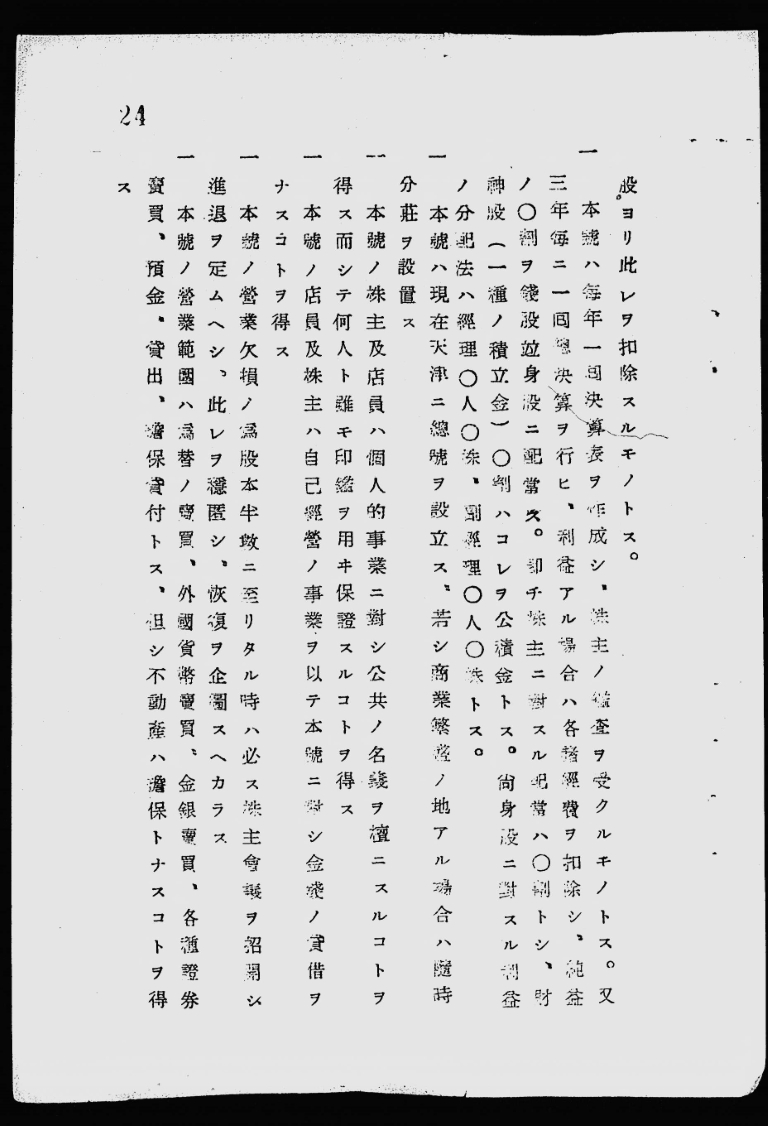 24
股。ヨリ此レヲ扣除スルモノトス。
一 本號ハ每年一回決算表ヲ作成シ、株主ノ鑑查ヲ受クルモノトス。又
三年每ニ一回總決算ヲ行ヒ、利益アル場合ハ各諸經費ヲ扣除シ、純益
ノ〇割ヲ錢股竝身股ニ配當ス。卽チ株主ニ對スル配當ハ〇割トシ、財
神股(一種ノ積立金)〇割ハコレヲ公積金トス。尙身股ニ對スル利益
ノ分配法ハ經理〇人〇株、副經理〇人〇株トス。
一 本號ハ現在天津ニ總號ヲ設立ス、若シ商業繁盛ノ地アル場合ハ隨時
分莊ヲ設置ス
一 本號ノ株主及店員ハ個人的事業ニ對シ公共ノ名義ヲ擅ニスルコトヲ
得ス而シテ何人ト雖モ印鑑ヲ用ヰ保證スルコトヲ得ス
一 本號ノ店員及株主ハ自己經營ノ事業ヲ以テ本號ニ對シ金錢ノ貸借ヲ
ナスコトヲ得ス
一 本號ノ營業欠損ノ爲股本半數ニ至リタル時ハ必ス株主會議ヲ招開シ
進退ヲ定ムヘシ、此レヲ隱匿シ、恢復ヲ企圖スヘカラス
一 本號ノ營業範圍ハ爲替ノ賣買、外國貨幣賣買、金銀賣買、各種證券
賣買、預金、貸出、擔保貸付トス、但シ不動產ハ擔保トナスコトヲ得
ス